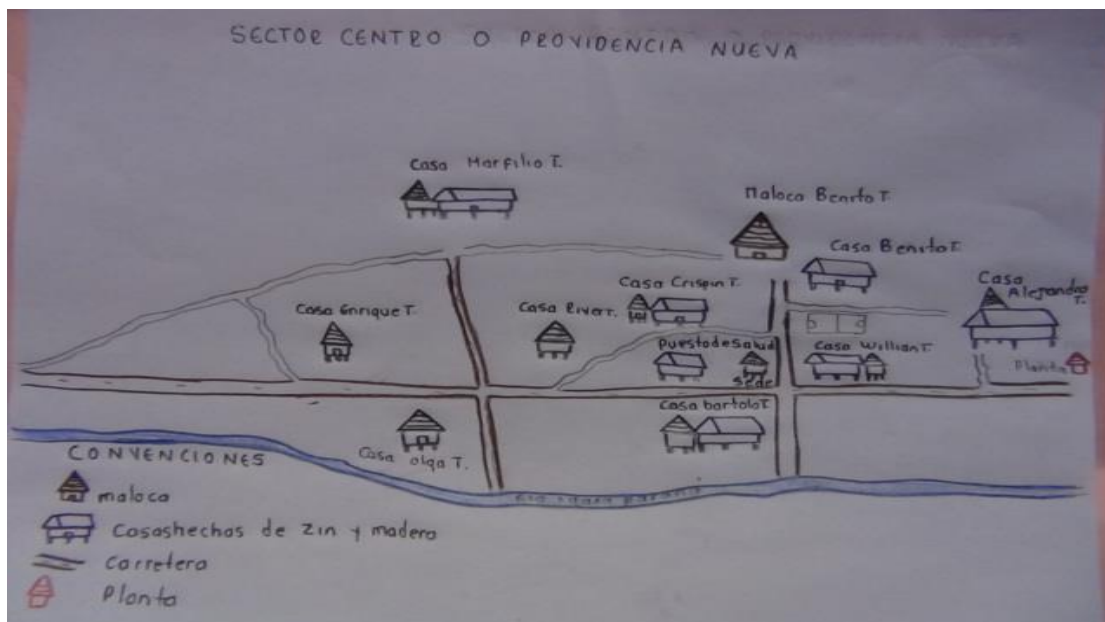 SECTOR CENTRO O PROVIDENCIA NUEVA
Casa Marfilio T.
Maloca Benito T.
Casa Benito T.
Casa Crispin T.
Casa Alejandro T.
Casa Enrique T.
Casa Eiver T.
Puesto de Salud
Casa Willian T.
Planta
Sede
Casa bartolo T
Casa olga T.
Rio Igara paraná
CONVENCIONES
maloca
Casashechas de Zin y madera
Carretera
Planta